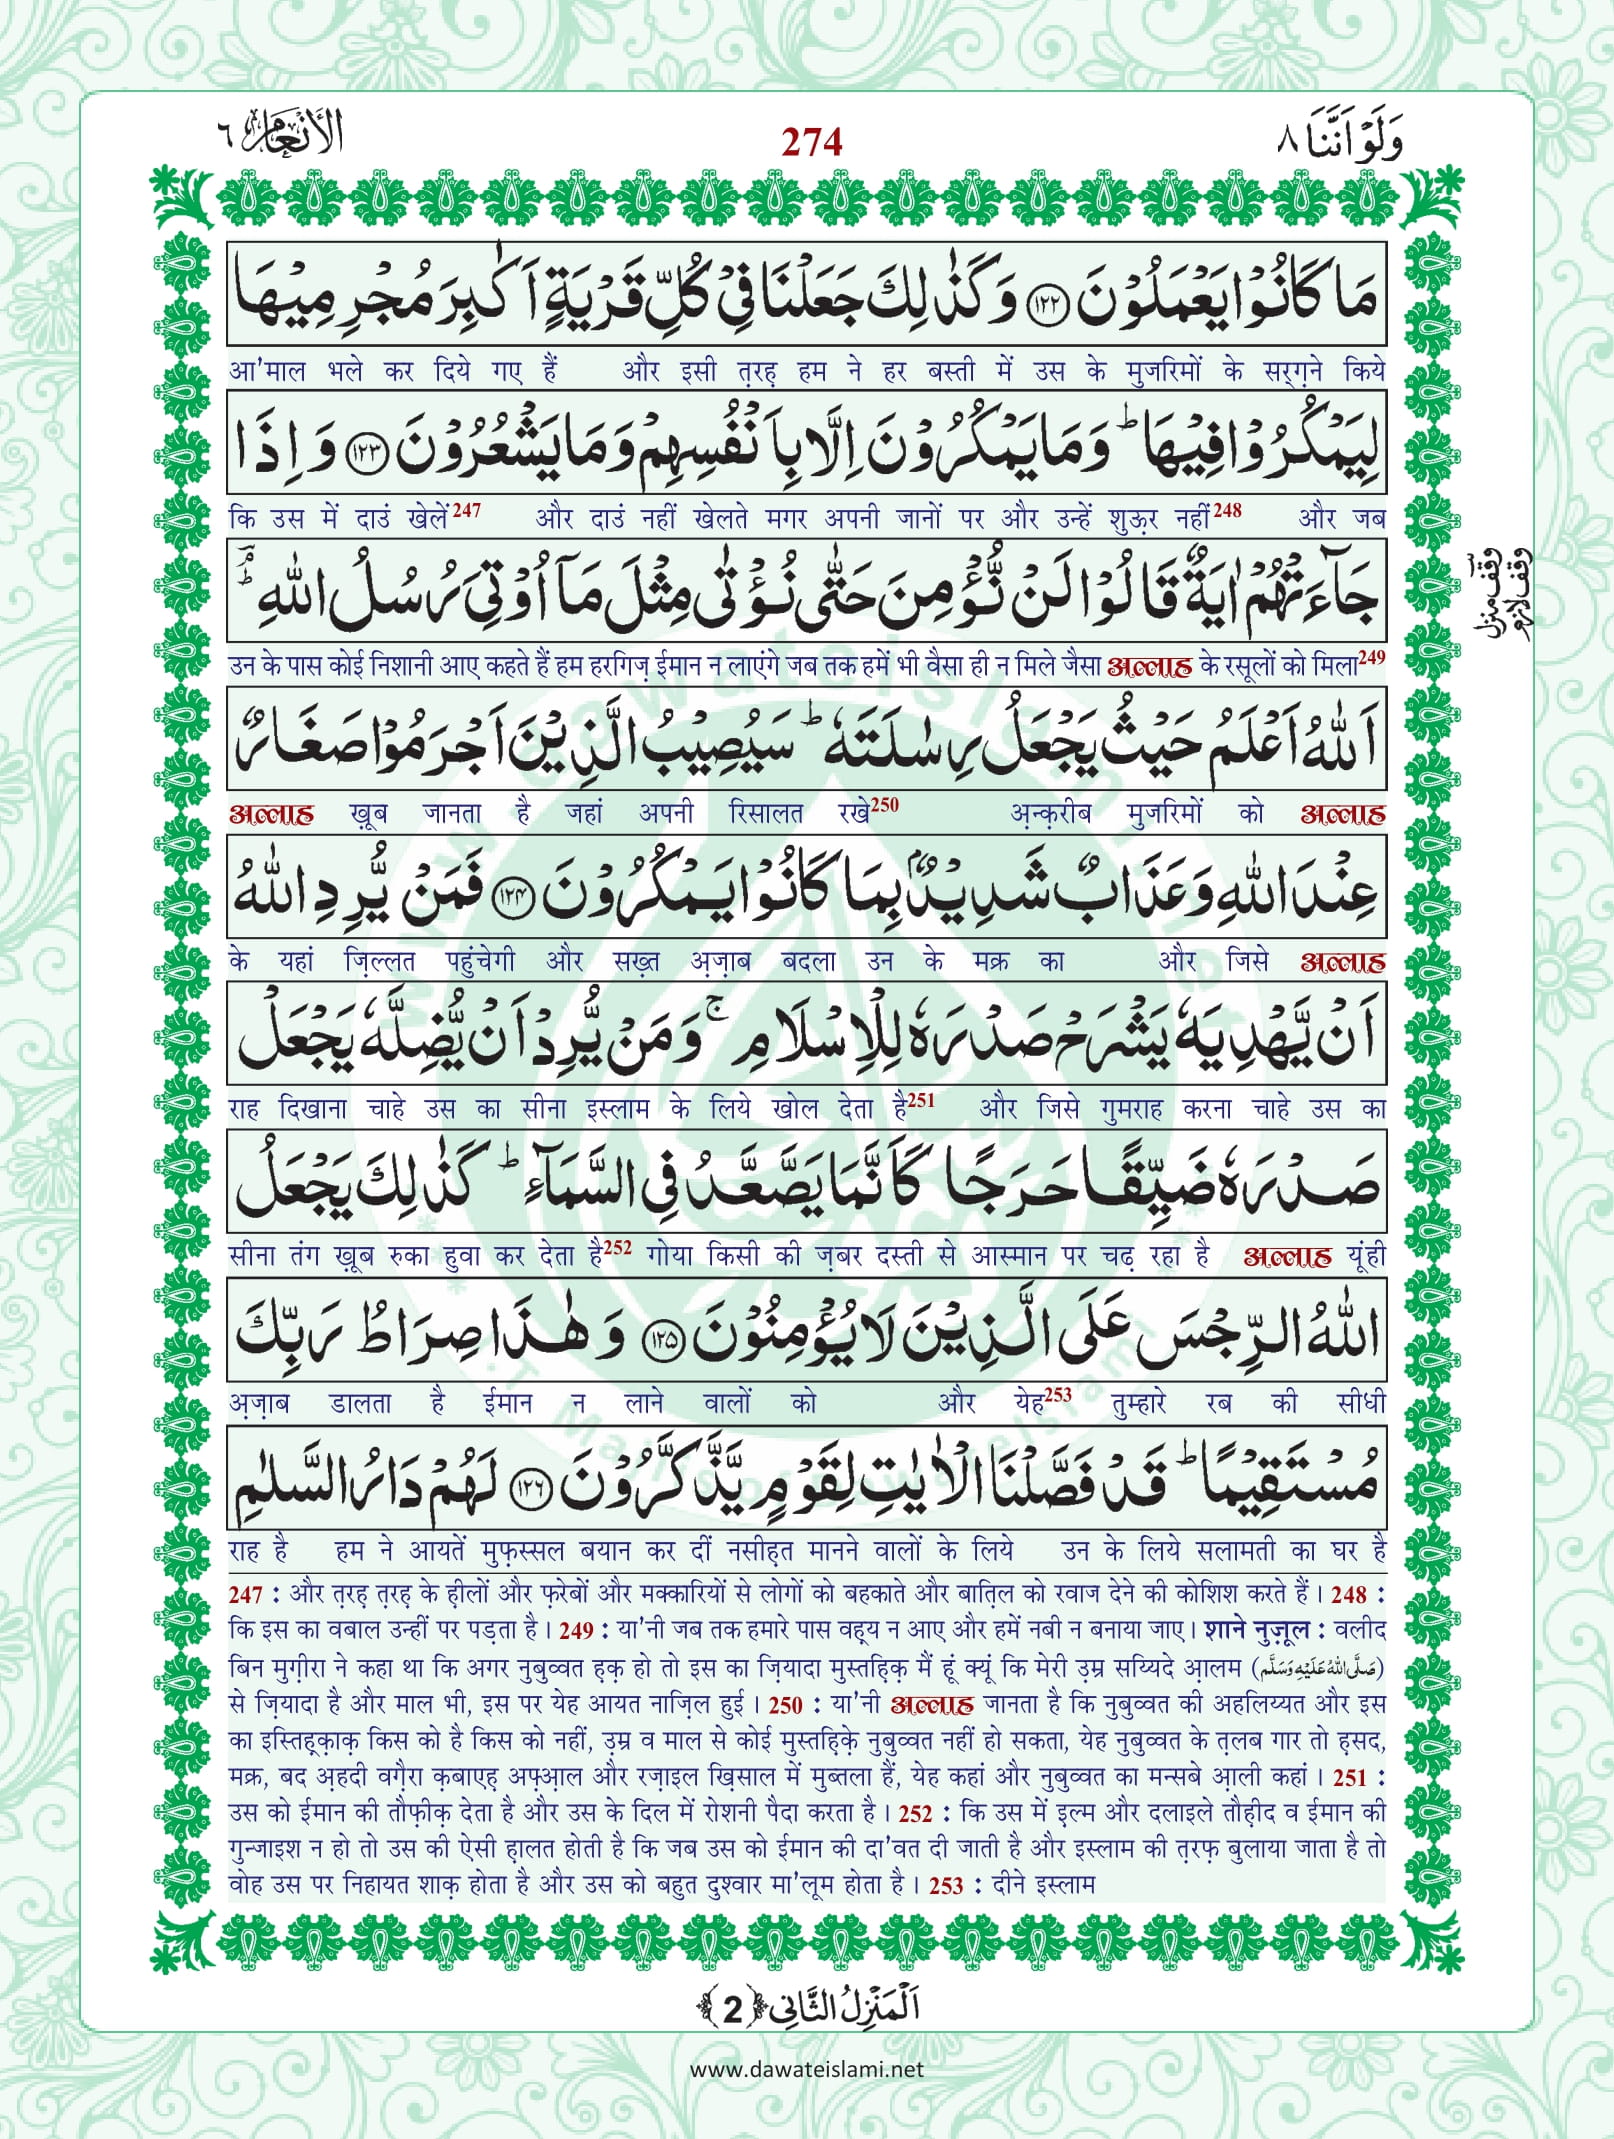 وَلَوْ اَنَّنَا ٨
274
الْاَنْعَام ٦
مَا كَانُوْا یَعْمَلُوْنَ ﴿۱۲۲﴾ وَ كَذٰلِكَ جَعَلْنَا فِیْ كُلِّ قَرْیَةٍ اَكٰبِرَ مُجْرِمِیْهَا
आ'माल भले कर दिये गए हैं और इसी त़रह़ हम ने हर बस्ती में उस के मुजरिमों के सर्ग़ने किये
لِیَمْكُرُوْا فِیْهَاؕ وَ مَا یَمْكُرُوْنَ اِلَّا بِاَنْفُسِهِمْ وَ مَا یَشْعُرُوْنَ ﴿۱۲۳﴾ وَ اِذَا
कि उस में दाउं खेलें247 और दाउं नहीं खेलते मगर अपनी जानों पर और उन्हें शुऊ़र नहीं248 और जब
جَآءَتْهُمْ اٰیَةٌ قَالُوْا لَنْ نُّؤْمِنَ حَتّٰى نُؤْتٰى مِثْلَ مَاۤ اُوْتِیَ رُسُلُ اللّٰهِ ؔؕ
وقف منزل
وقف لازم
उन के पास कोई निशानी आए कहते हैं हम हरगिज़ ईमान न लाएंगे जब तक हमें भी वैसा ही न मिले जैसा अल्लाह के रसूलों को मिला249
اَللّٰهُ اَعْلَمُ حَیْثُ یَجْعَلُ رِسٰلَتَهٗؕ سَیُصِیْبُ الَّذِیْنَ اَجْرَمُوْا صَغَارٌ
अल्लाह ख़ूब जानता है जहां अपनी रिसालत रखे250 अ़न्क़रीब मुजरिमों को अल्लाह
عِنْدَ اللّٰهِ وَ عَذَابٌ شَدِیْدٌۢ بِمَا كَانُوْا یَمْكُرُوْنَ ﴿۱۲۴﴾ فَمَنْ یُّرِدِ اللّٰهُ
के यहां ज़िल्लत पहुंचेगी और सख़्त अ़ज़ाब बदला उन के मक्र का और जिसे अल्लाह
اَنْ یَّهْدِیَهٗ یَشْرَحْ صَدْرَهٗ لِلْاِسْلَامِۚ وَ مَنْ یُّرِدْ اَنْ یُّضِلَّهٗ یَجْعَلْ
राह दिखाना चाहे उस का सीना इस्लाम के लिये खोल देता है251 और जिसे गुमराह करना चाहे उस का
صَدْرَهٗ ضَیِّقًا حَرَجًا كَاَنَّمَا یَصَّعَّدُ فِی السَّمَآءِؕ كَذٰلِكَ یَجْعَلُ
सीना तंग ख़ूब रुका हुवा कर देता है252 गोया किसी की ज़बर दस्ती से आस्मान पर चढ़ रहा है अल्लाह यूंही
اللّٰهُ الرِّجْسَ عَلَى الَّذِیْنَ لَا یُؤْمِنُوْنَ ﴿۱۲۵﴾ وَ هٰذَا صِرَاطُ رَبِّكَ
अ़ज़ाब डालता है ईमान न लाने वालों को और येह253 तुम्हारे रब की सीधी
مُسْتَقِیْمًاؕ قَدْ فَصَّلْنَا الْاٰیٰتِ لِقَوْمٍ یَّذَّكَّرُوْنَ ﴿۱۲۶﴾ لَهُمْ دَارُ السَّلٰمِ
राह है हम ने आयतें मुफ़स्सल बयान कर दीं नसीह़त मानने वालों के लिये उन के लिये सलामती का घर है
247 : और त़रह़ त़रह़ के ह़ीलों और फ़रेबों और मक्कारियों से लोगों को बहकाते और बात़िल को रवाज देने की कोशिश करते हैं। 248 :
कि इस का वबाल उन्हीं पर पड़ता है। 249 : या'नी जब तक हमारे पास वह़्य न आए और हमें नबी न बनाया जाए। शाने नुज़ूल : वलीद
बिन मुग़ीरा ने कहा था कि अगर नुबुव्वत ह़क़ हो तो इस का ज़ियादा मुस्तह़िक़ मैं हूं क्यूं कि मेरी उ़म्र सय्यिदे आ़लम (صَلَّى اللّٰهُ عَلَیْهِ وَسَلَّم)
से ज़ियादा है और माल भी, इस पर येह आयत नाज़िल हुई। 250 : या'नी अल्लाह जानता है कि नुबुव्वत की अहलिय्यत और इस
का इस्तिह़्क़ाक़ किस को है किस को नहीं, उ़म्र व माल से कोई मुस्तह़िक़े नुबुव्वत नहीं हो सकता, येह नुबुव्वत के त़लब गार तो ह़सद,
मक्र, बद अ़हदी वग़ैरा क़बाएह़ अफ़्आ़ल और रज़ाइल ख़िसाल में मुब्तला हैं, येह कहां और नुबुव्वत का मन्सबे आ़ली कहां। 251 :
उस को ईमान की तौफ़ीक़ देता है और उस के दिल में रोशनी पैदा करता है। 252 : कि उस में इ़ल्म और दलाइले तौह़ीद व ईमान की
गुन्जाइश न हो तो उस की ऐसी ह़ालत होती है कि जब उस को ईमान की दा'वत दी जाती है और इस्लाम की त़रफ़ बुलाया जाता है तो
वोह उस पर निहायत शाक़ होता है और उस को बहुत दुश्वार मा'लूम होता है। 253 : दीने इस्लाम
اَلْمَنْزِلُ الثَّانِی ﴿2﴾
www.dawateislami.net